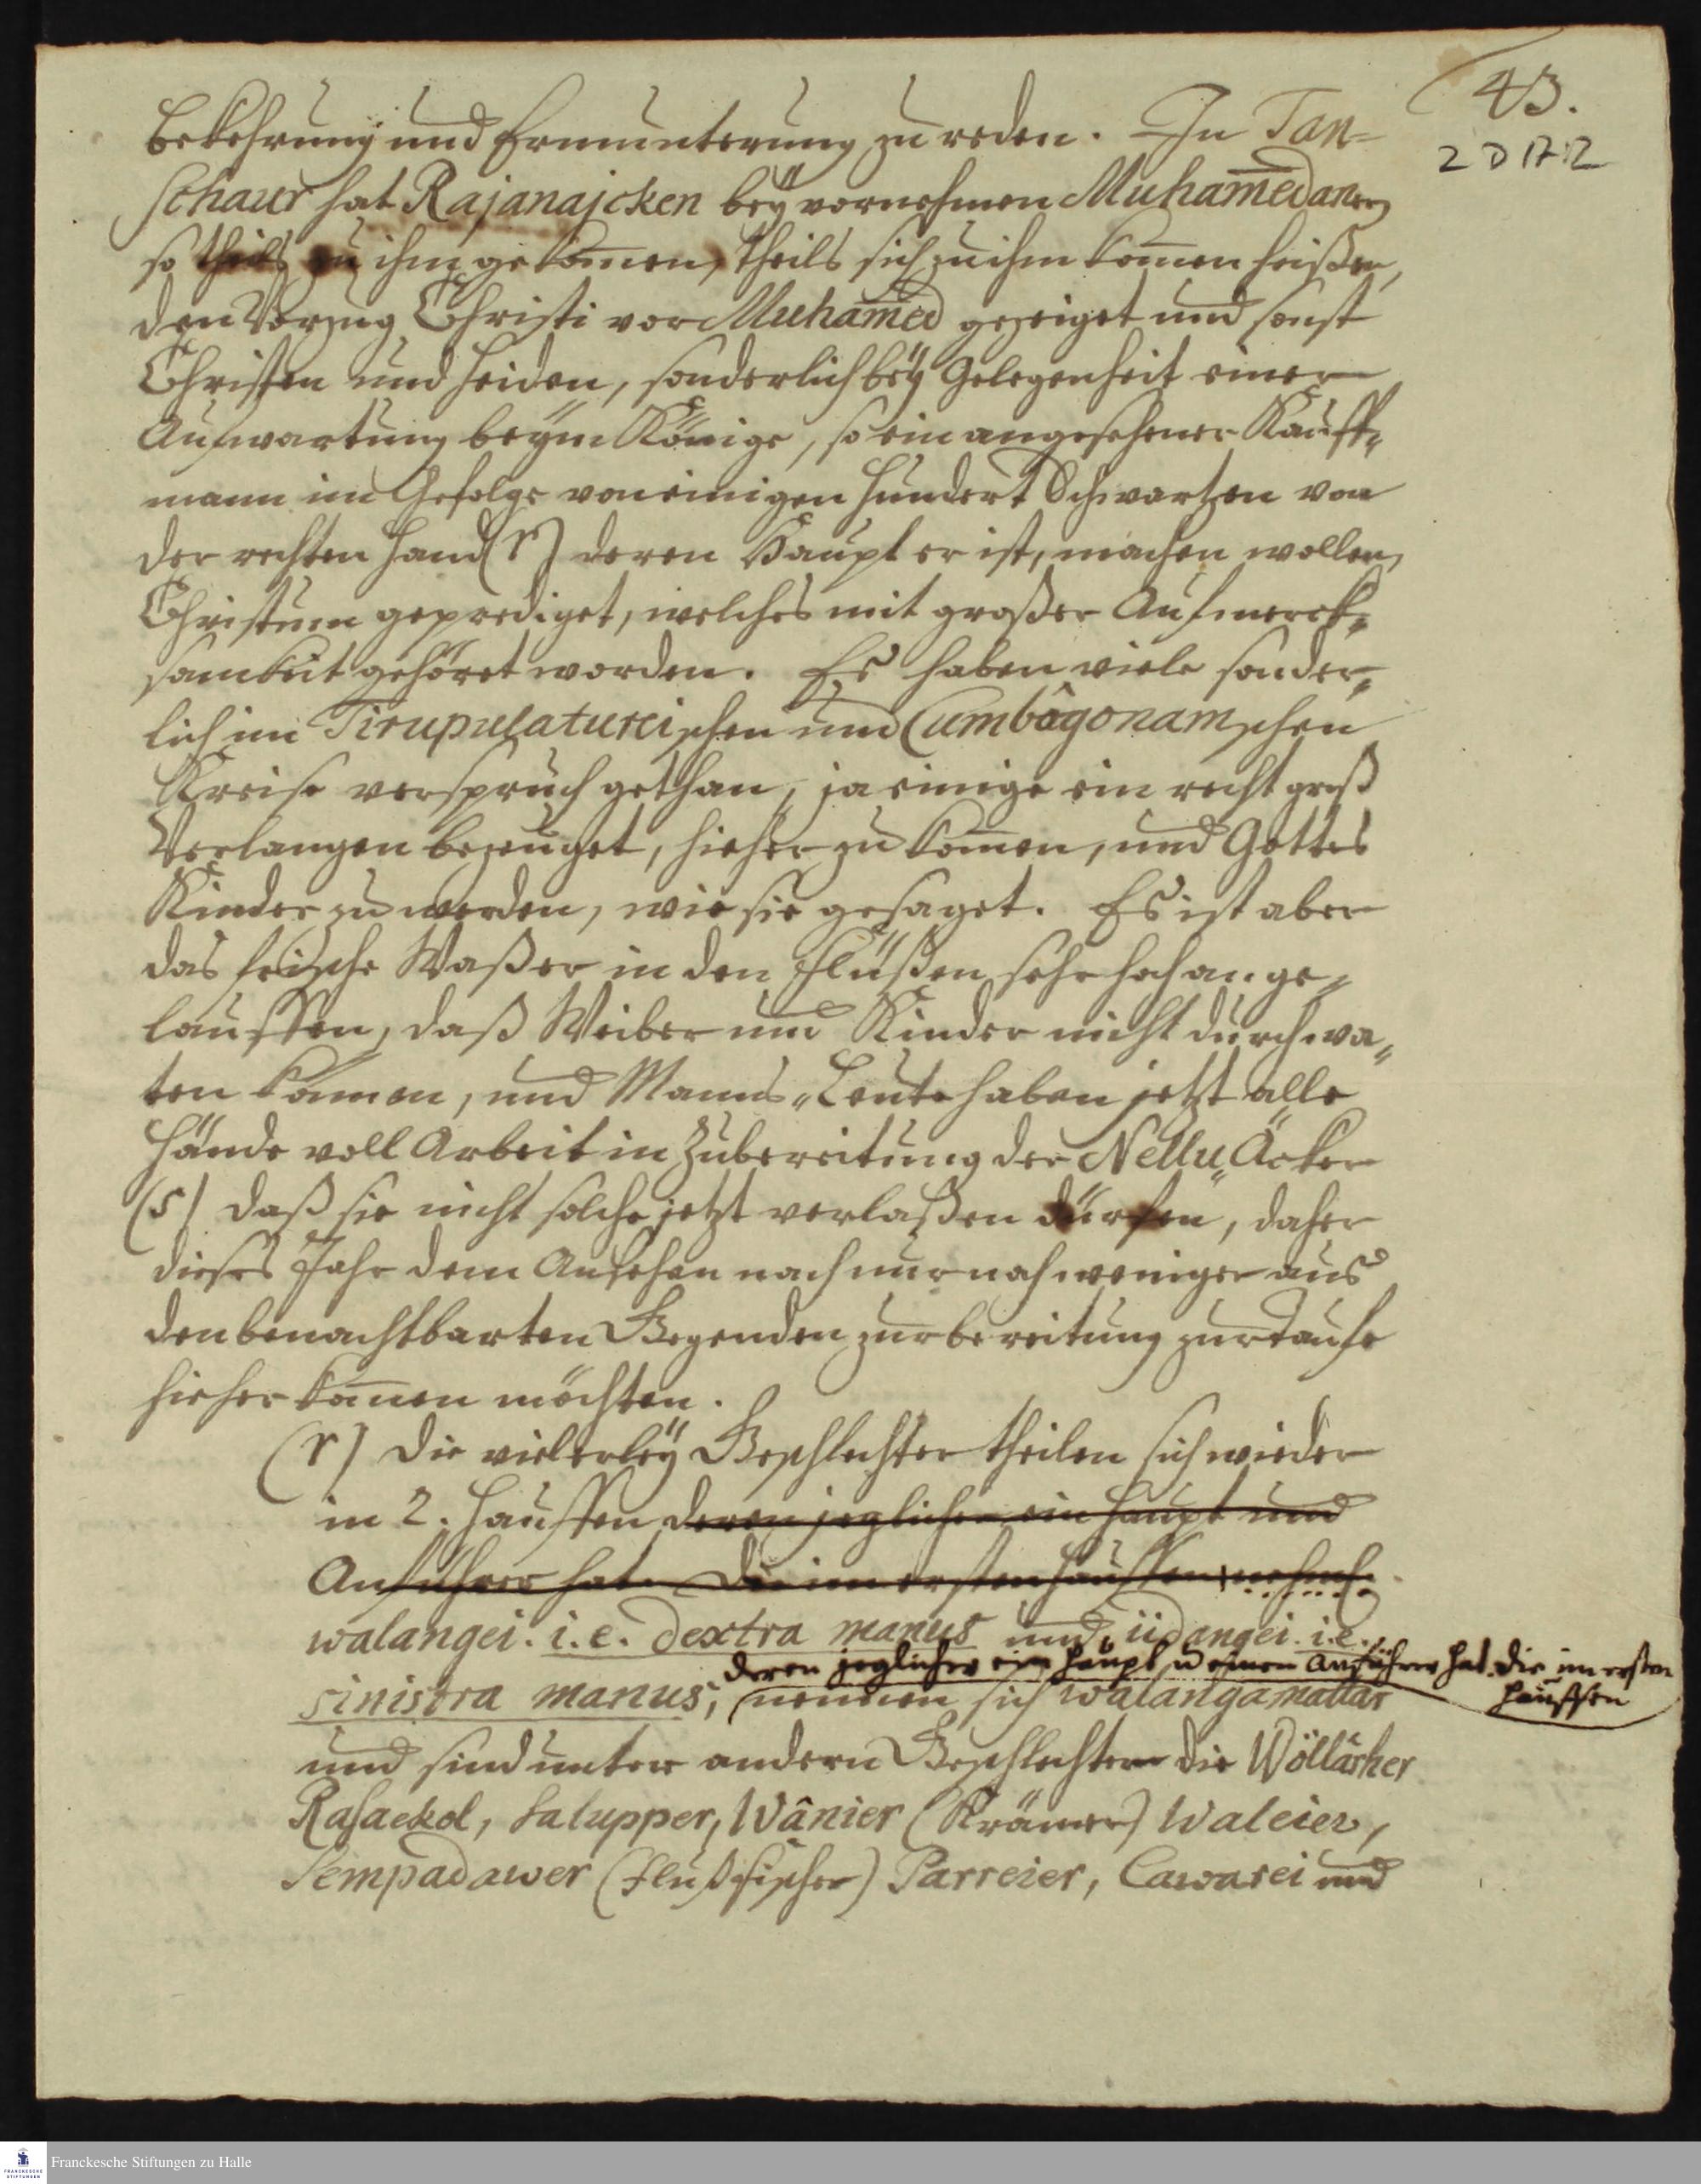 43.
2 D 17:2
bekehrung und Ermunterung zu reden. In Tan-
schaur hat Rajanajcken beÿ vornehmen Muham̅edanern
so theils zu ihm gekom̅en, theils sich zu ihm kom̅en heißen,
den Vorzug Christi vor Muham̅ed gezeiget und sonst
Christen und Heiden, sonderlich beÿ Gelegenheit einer
Aufwartung beÿm Könige, so ein angesehener Kauff-
mann im Gefolge von einigen hundert Schwartzen von
der rechten Hand (r) deren Haupt er ist, machen wollen,
Christum geprediget, welches mit großer Aufmerck-
samkeit gehöret worden. Es haben viele sonder-
lich im Tirupulatureischen und Cumbâgonamschen
Kreise verspruch gethan, ja einige ein recht groß
Verlangen bezeuget, hieher zu kom̅en, und Gottes
Kinder zu werden, wie sie gesaget. Es ist aber
das frische Waßer in den Flüßen sehr hoch ange-
lauffen, daß Weiber und Kinder nicht durchwa-
ten können, und Manns-Leute haben jetzt alle
Hände voll Arbeit in Zubereitung der Nellu-Äcker
(s) daß sie nicht solche jetzt verlaßen dürfen, daher
dieses Jahr dem Ansehen nach nur noch weniger aus
den benachtbarten Gegenden zur bereitung zur Taufe
hieher kom̅en möchten.
(r) Die vielerleÿ Geschlechter theilen sich wieder
in 2. Hauffen deren jeglicher ein Haupt und
Anführer hat. Die im ersten Hauffen
walangei. i. e. dextra manus und iidangei. i. e.
deren jeglicher ein Haupt u einen Anführer hat. die im ersten
Hauffen
sinistra manus; nennen sich walangamattar
und sind unter andern Geschlechtern die Wöllârher
Rasaekol, Salupper, Wânier (Krämer) Waleier,
Sempadawer (Flußfischer) Parreier, Cawarei und
Franckesche Stiftungen zu Halle